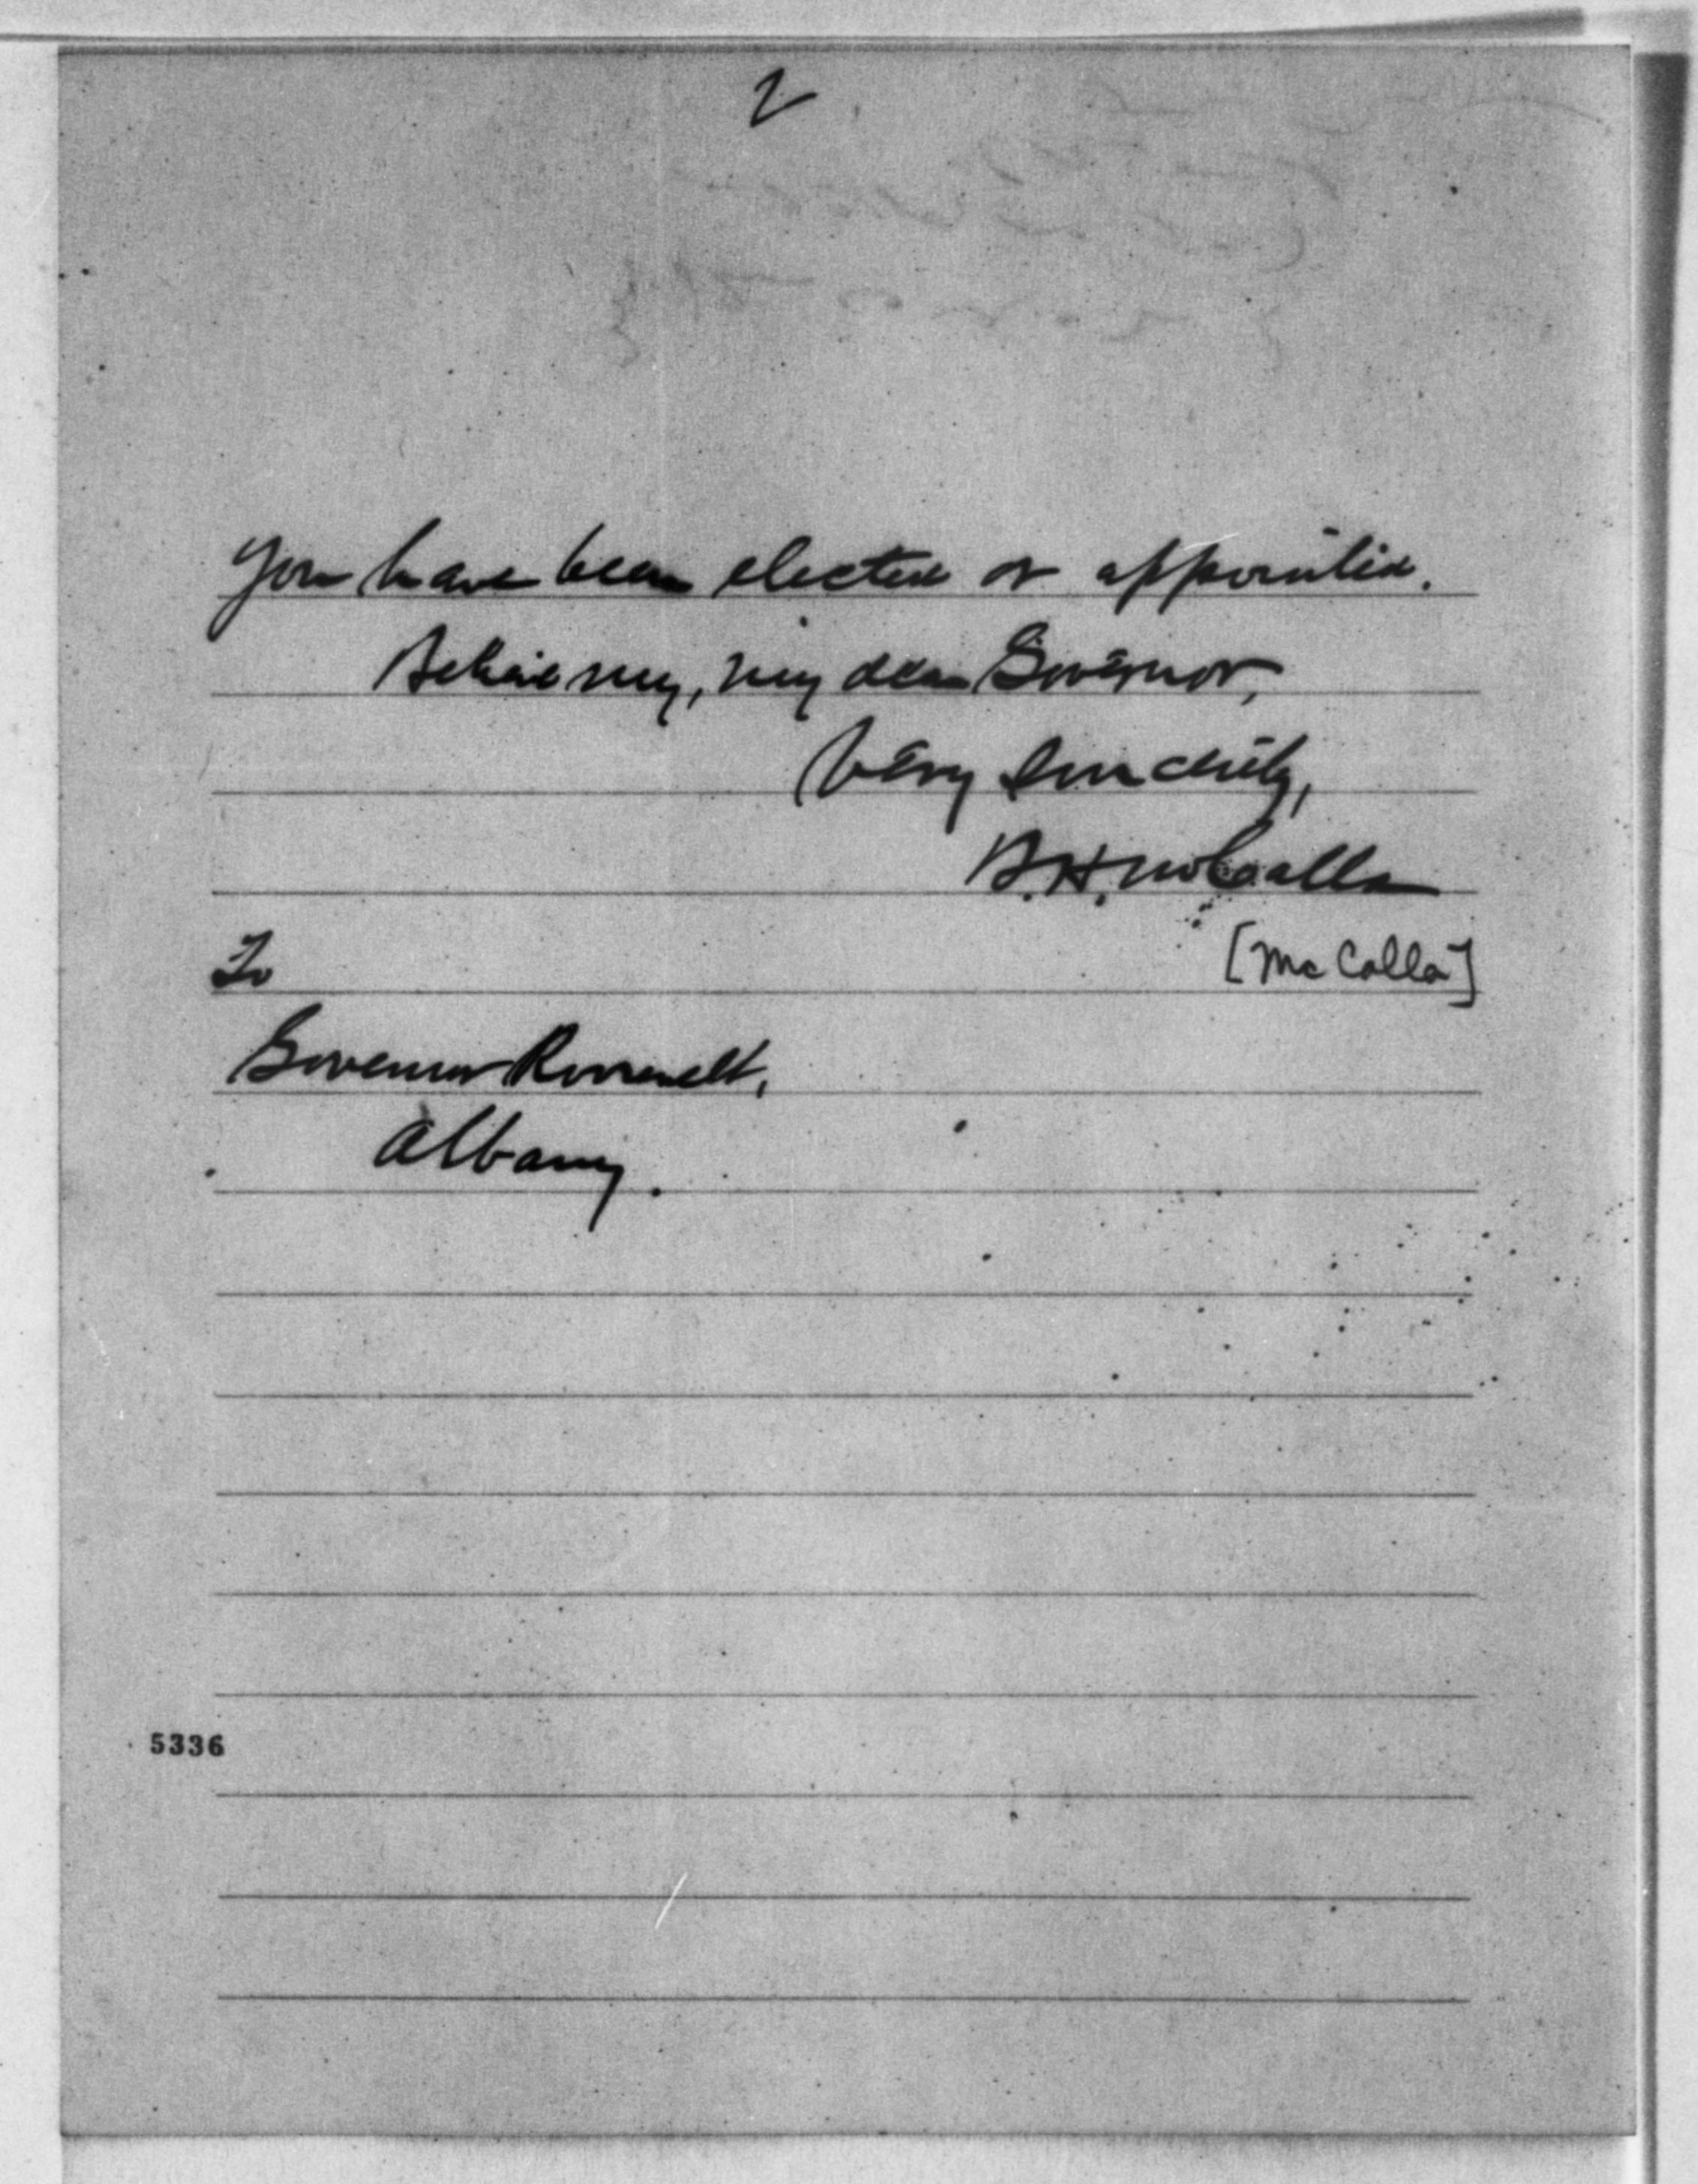 2
you have been elected or appointed.
Believe me, my dear Governor,
Very sincerely,
B. H. McCalla
[McCalla]
To
Governor Roosevelt,
Albany.
5336